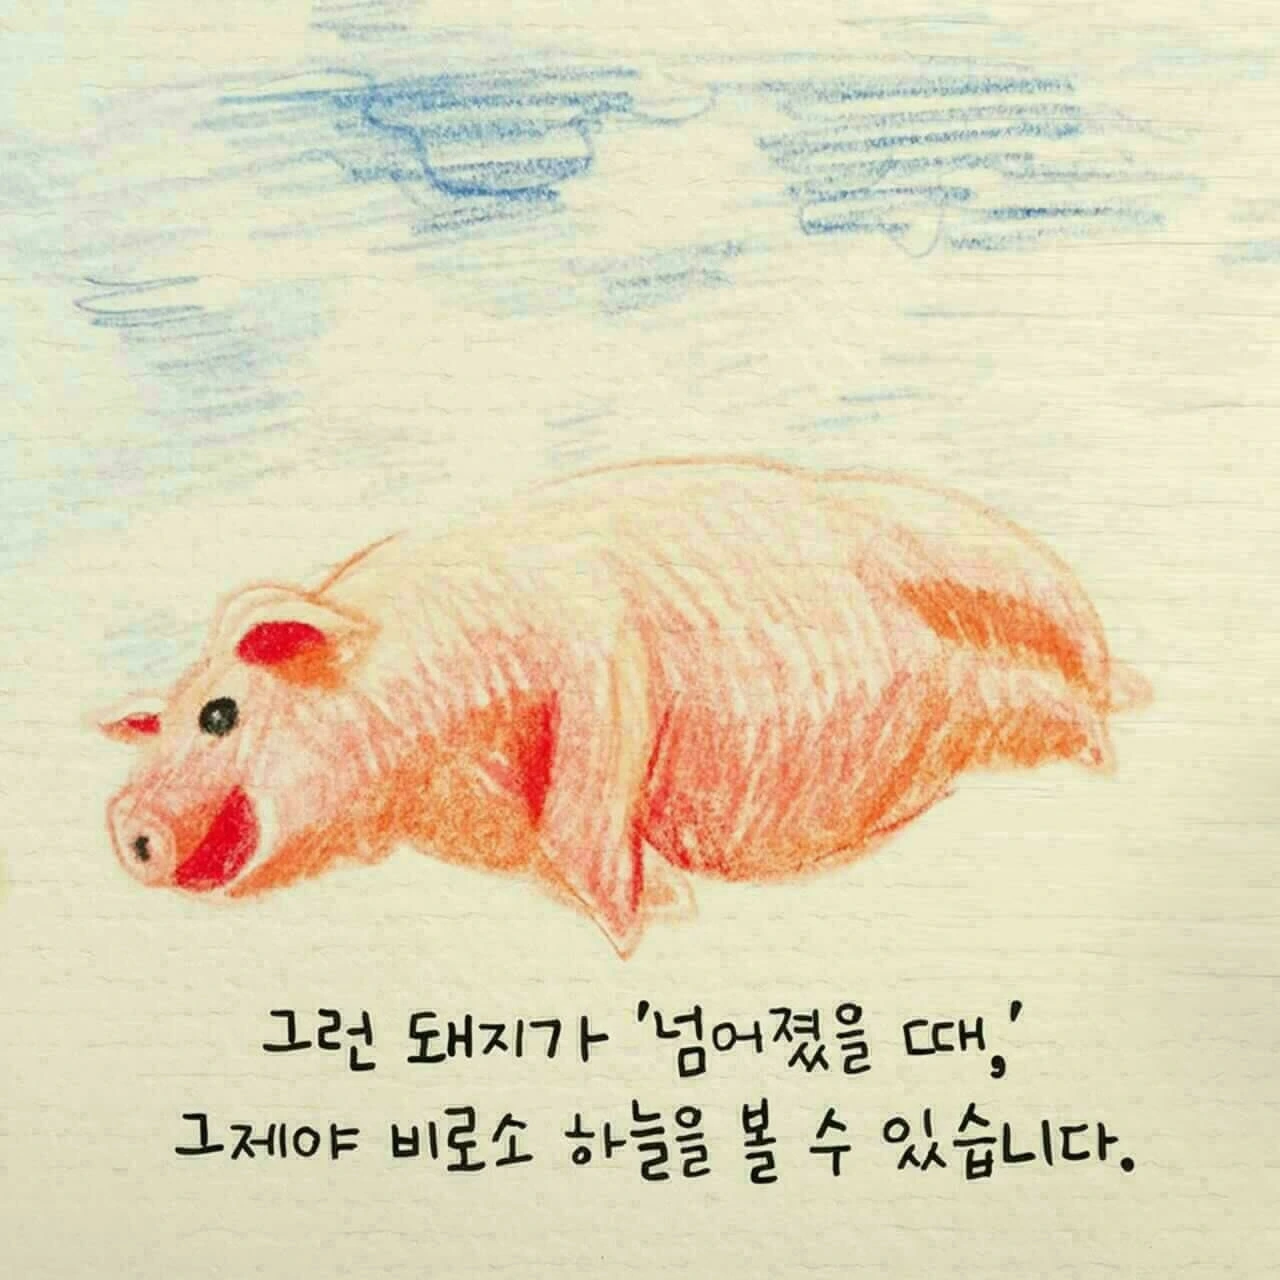 그런 돼지가 '넘어졌을 때,'
그제야 비로소 하늘을 볼 수 있습니다.